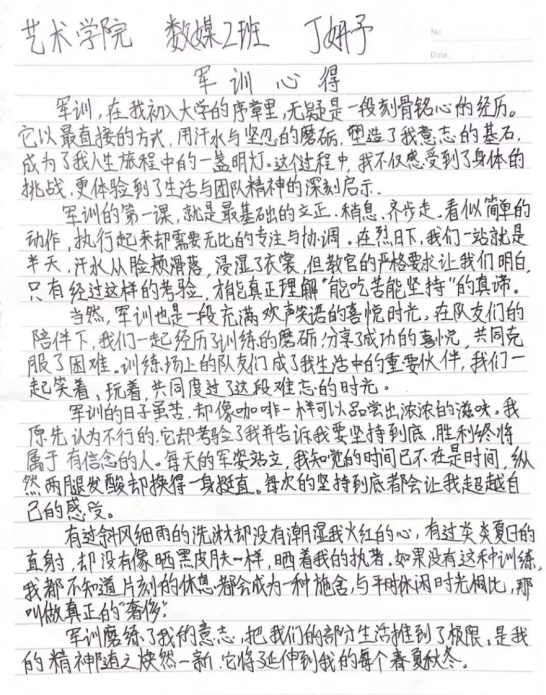 艺术学院 数媒2班 丁妍予
No
Date
军训心得
军训,在我初入大学的序章里,无疑是一段刻骨铭心的经历。
它以最直接的方式,用汗水与坚忍的磨砺,塑造了我意志的基石,
成为了我人生旅程中的一盏明灯。这个过程中,我不仅感受到了身体的
挑战,更体验到了生活与团队精神的深刻启示.
军训的第一课,就是最基础的立正、稍息、齐步走、看似简单的
动作,执行起来却需要无比的专注与协调。在烈日下,我们一站就是
半天,汗水从脸颊滑落,浸湿了衣裳,但教官的严格要求让我们明白,
只有经过这样的考验,才能真正理解"能吃苦能坚持"的真谛。
当然,军训也是一段充满欢声笑语的喜悦时光。在队友们的
陪伴下,我们一起经历了训练的磨砺,分享了成功的喜悦,共同克
服了困难。训练场上的队友们成了我生活中的重要伙伴,我们一
起笑着、玩着,共同度过了这段难忘的时光。
军训的日子虽苦,却像咖啡一样可以品尝出浓浓的滋味。我
原先认为不行的,它却考验了我并告诉我要坚持到底,胜利终将
属于有信念的人。每天的军姿站立,我知觉的时间已不在是时间,纵
然两腿发酸却换得一身挺直。每次的坚持到底都会让我超越自
己的感觉。
有过斜风细雨的洗沐却没有潮湿我火红的心,有过炎炎夏日的
直射,却没有像晒黑皮肤一样,晒着我的执著。如果没有这种训练,
我都不知道片刻的休息都会成为一种施舍,与平时休闲时光相比,那
叫做真正的"奢侈".
军训磨练了我的意志,把我们的部分生活推到了极限,是我
的精神随之焕然一新,它将延伸到我的每个春夏秋冬。